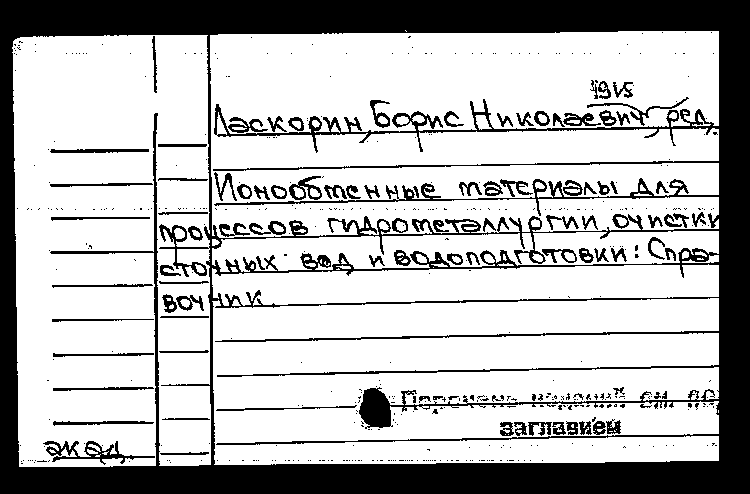 1915
Ласкорин, Борис Николаевич, ред.
Ионообменные материалы для
процессов гидрометаллургии, очистки
сточных вод и водоподготовки: Спра-
вочник.
Перечень изданий см. под
заглавием
экад.